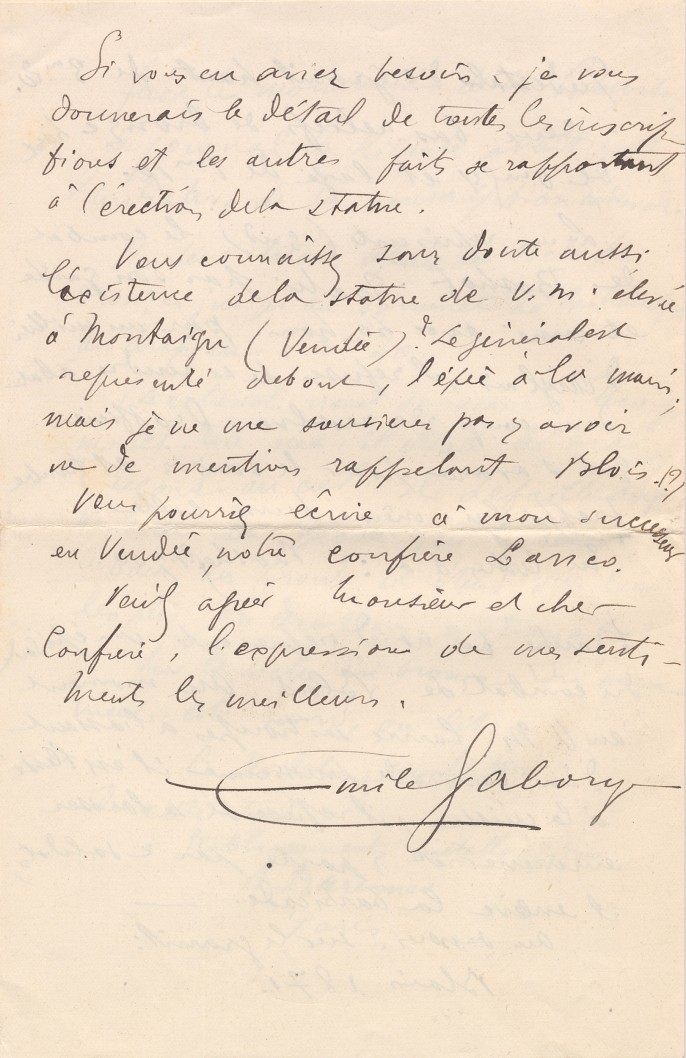 Si vous en aviez besoin, je vous
donnerais le détail de toutes les inscrip
tions et les autres faits se rapportant
à l'érection de la statue.
Vous connaissez sans doute aussi
l'existence de la statue de V. M. élevée
à Montaigu (Vendée)? Le général est
représenté debout, l'épée à la main,
mais je ne me souviens pas y avoir
vu de mention rappelant Blois. (?)
Vous pourriez écrire à mon successeur
en Vendée, notre confrère
Veuillez agréer Monsieur et cher
Confrère, l'expression de mes senti-
ments les meilleurs.
Emile Gabory